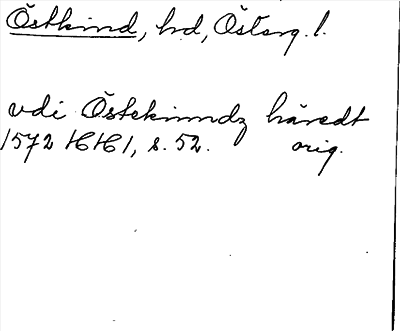 Östkind, hd, Österg. l.
vdi Östekinndz häredt
1572 HH1, s. 52. orig.